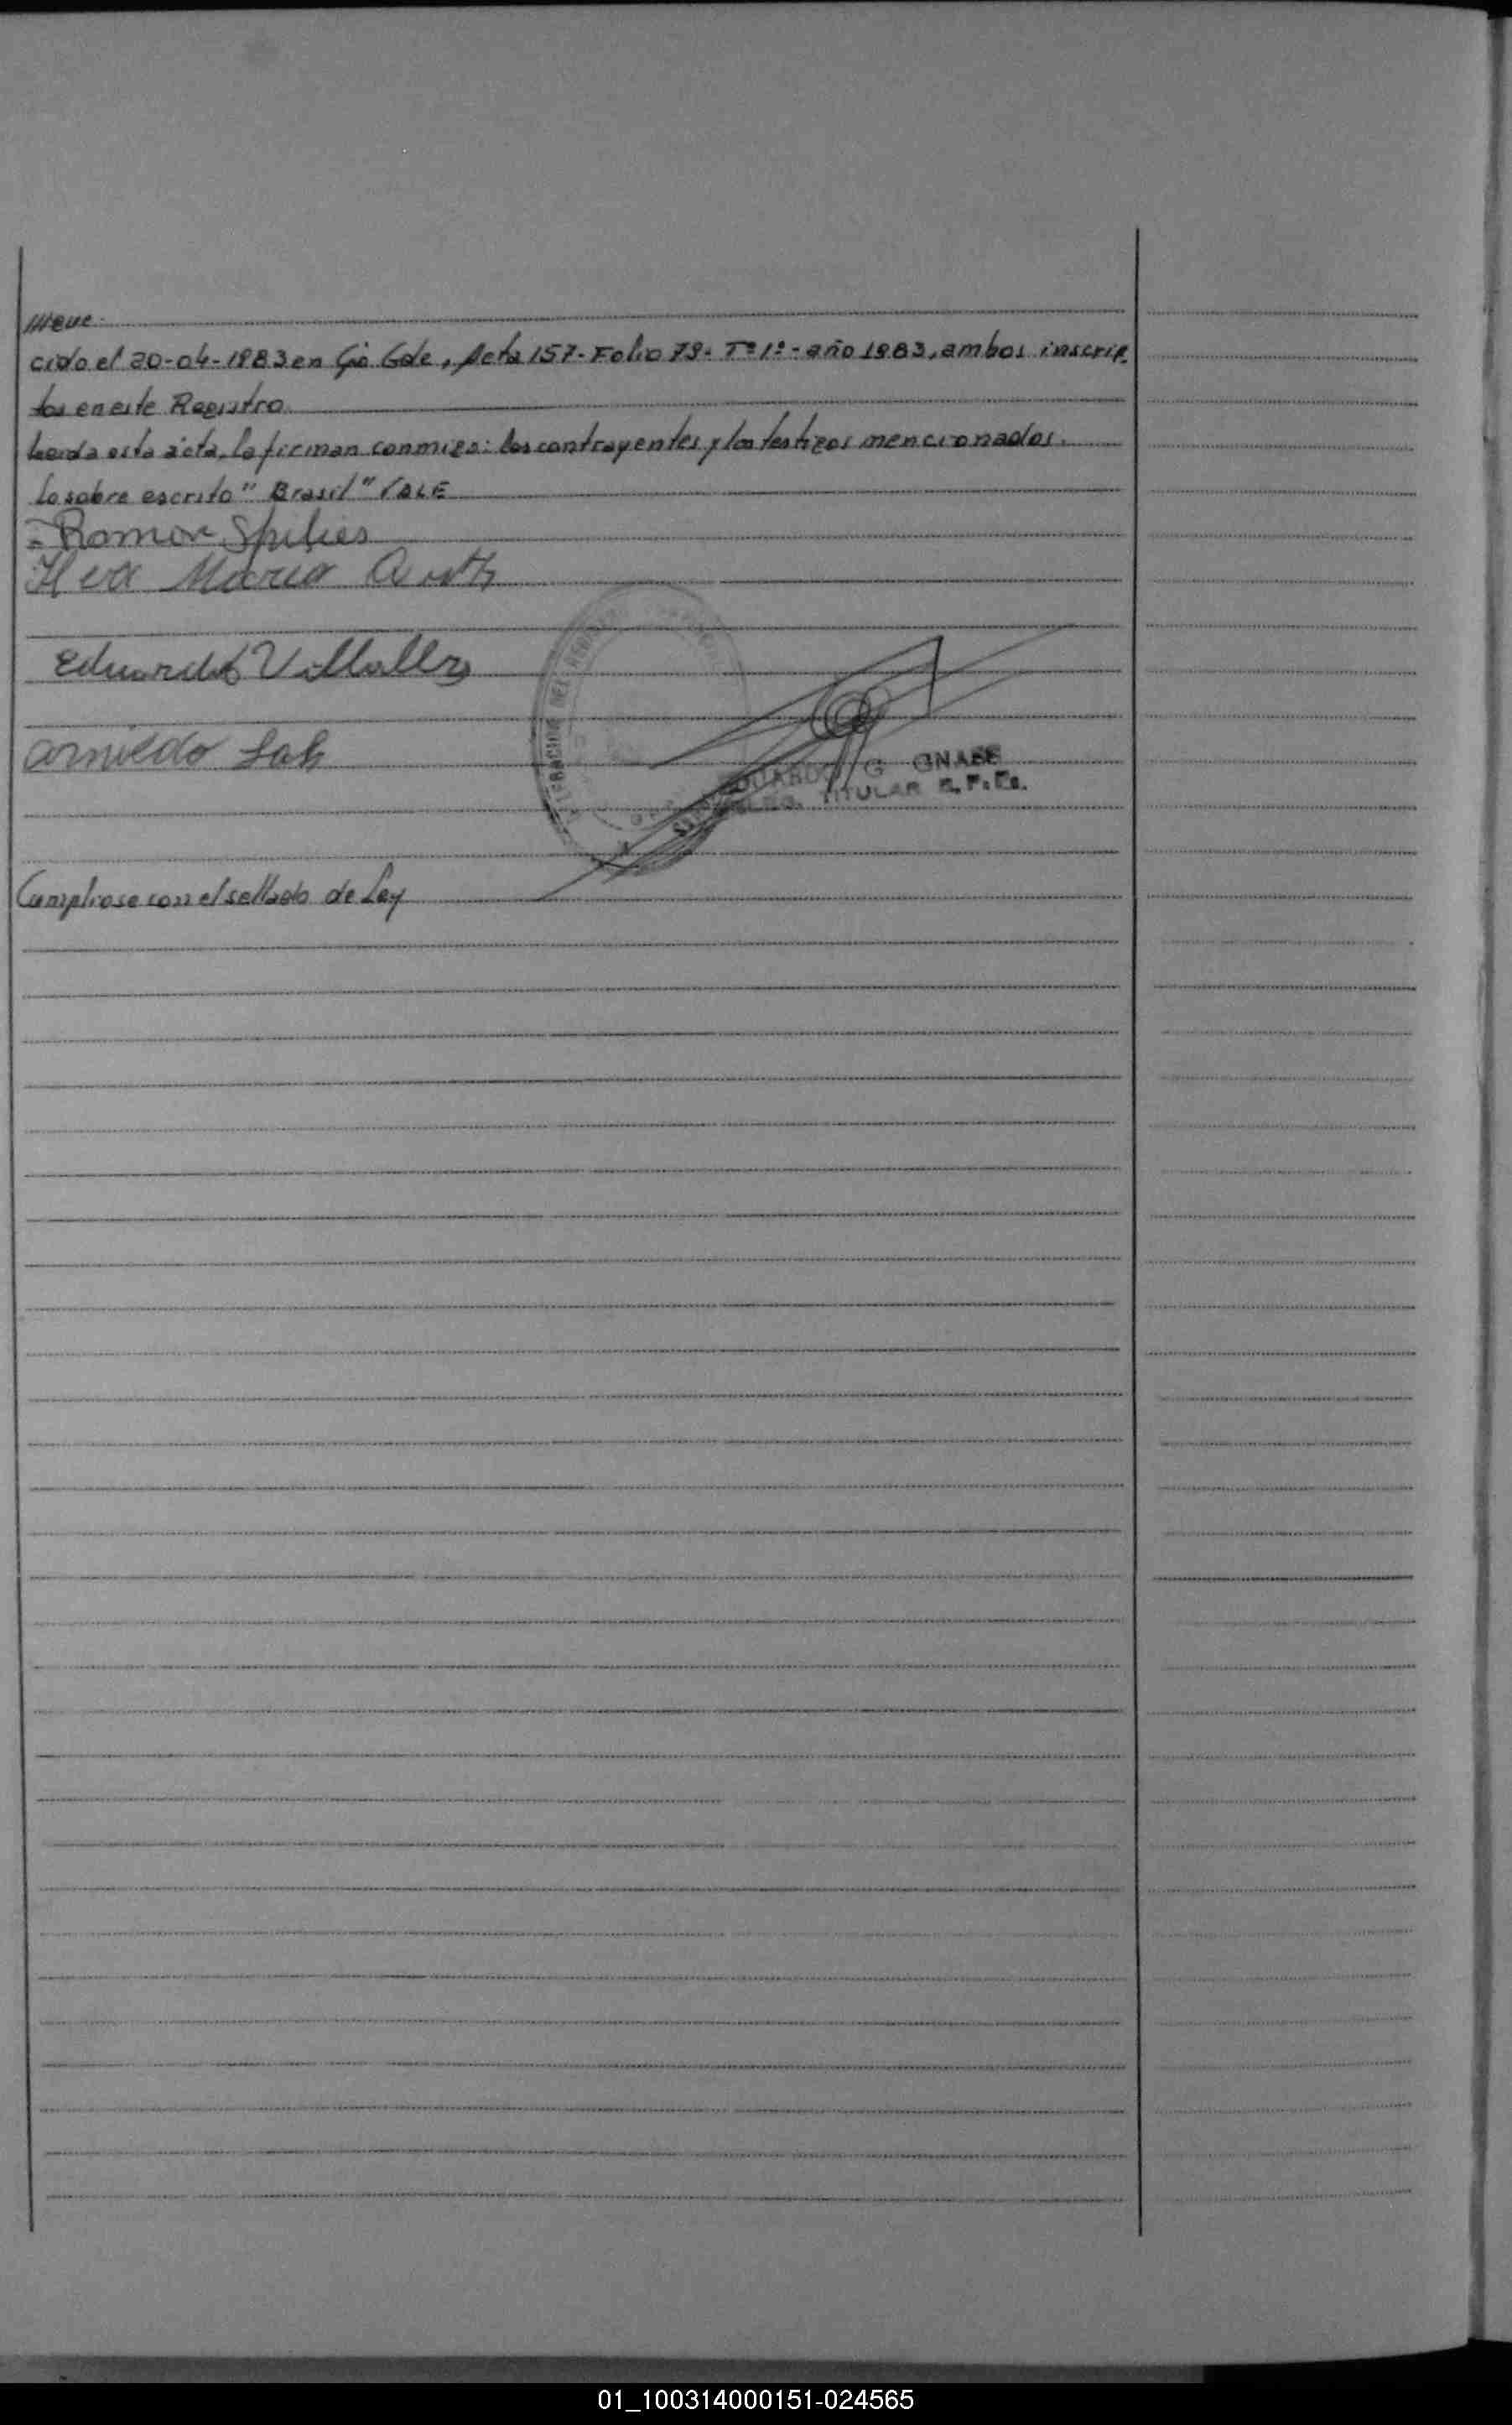 cido el 20-04-1983 en Gio Gde, Acta 157- Folio 79- Tº 1º- año 1983, ambos inscrip
tos en este Registro
Leida esta acta, la firman conmigo: los contrayentes y los testigos mencionados.
Lo sobre escrito " Brasil " VALE
Ramon Spilies
Maria
Eduardo Villalba
arnildo
EDUARDO G GNASE
TITULAR
Cumpliose con el sellado de Ley
01_100314000151-024565